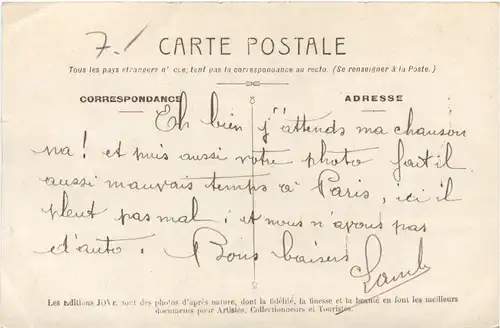 7.-/
CARTE POSTALE
Tous les pays étrangers n'acceptent pas la correspondance au recto. (Se renseigner à la Poste.)
CORRESPONDANCE
ADRESSE
Eh bien j'attends ma chanson
na! et puis aussi votre photo fait il
aussi mauvais temps à Paris, ici il
pleut pas mal; et nous n'avons pas
d'auto. Bons baisers
Les Editions JOVE sont des photos d'après nature, dont la fidélité, la finesse et la beauté en font les meilleurs
documents pour Artistes, Collectionneurs et Touristes.